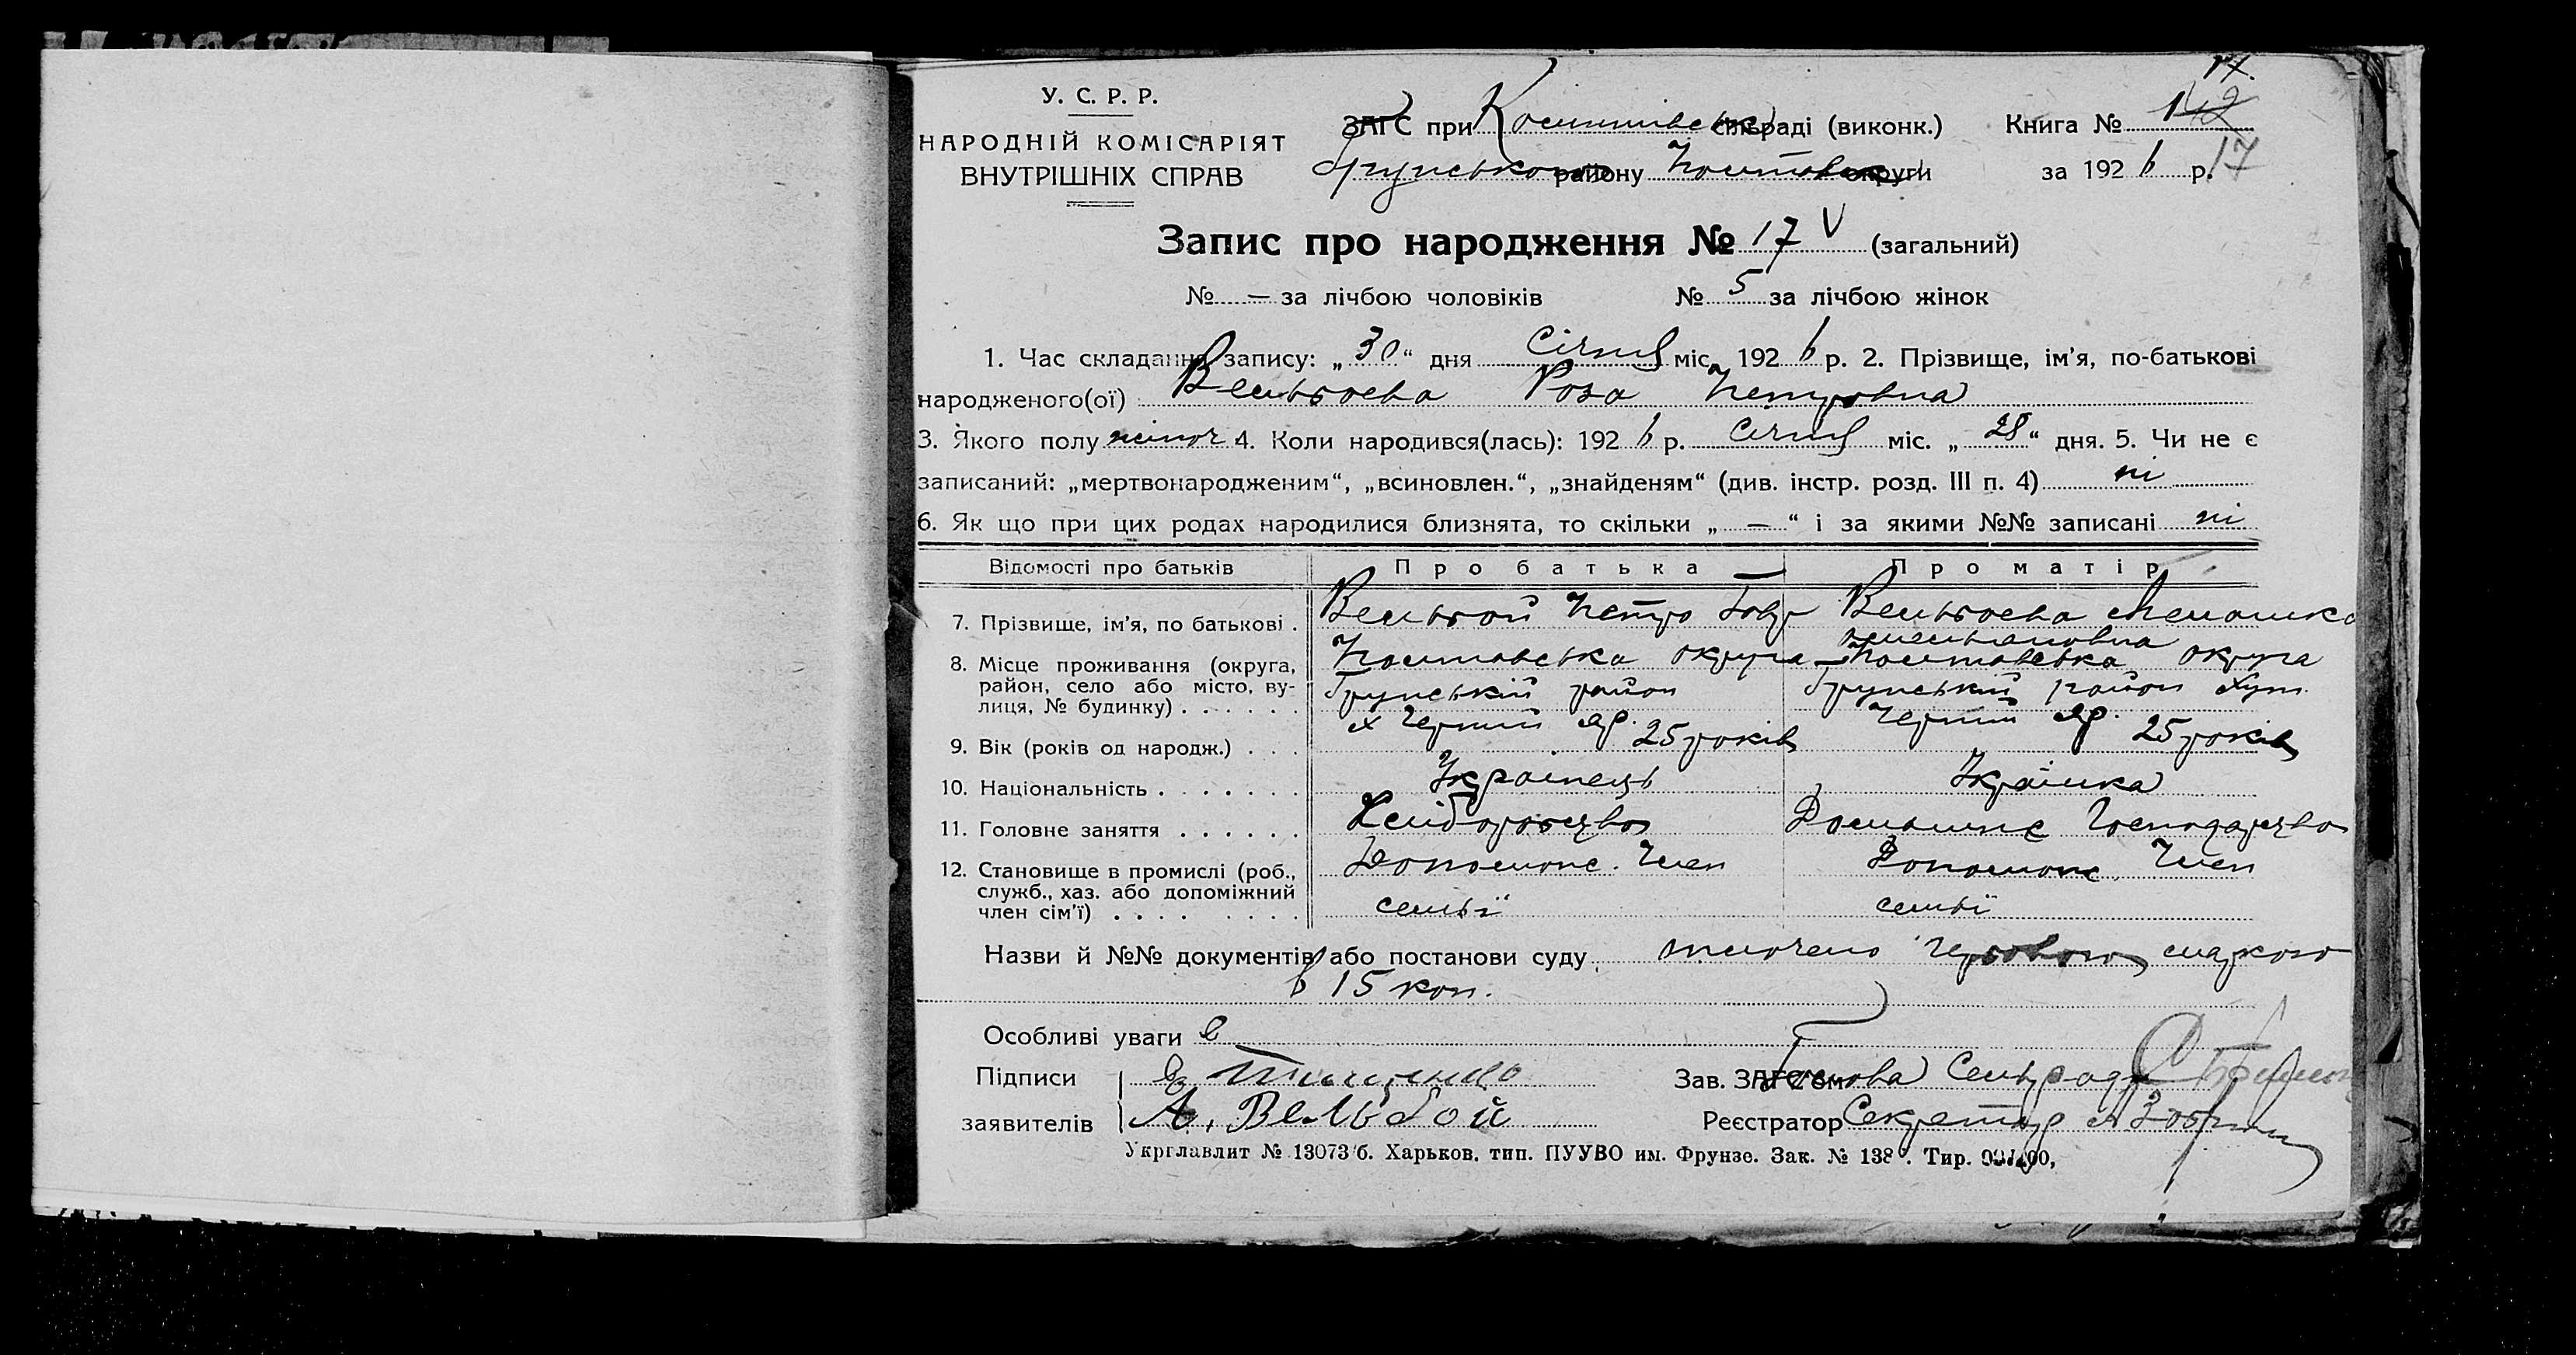 У. С. Р. Р.
НАРОДНІЙ КОМІСАРІЯТ
ВНУТРІШНІХ СПРАВ
ЗАГС при сільраді (виконк.) Книга №
Грунського району Полтавськ округи за 1926 р. 17
Запис про народження № 17 V (загальний)
№ — за лічбою чоловіків № 5 за лічбою жінок
1. Час складання запису: „30“ дня Січня міс. 1926 р. 2. Прізвище, ім’я, по-батькові
народженого(ої) Вельбоева Роза Петровна
3. Якого полу жіноч 4. Коли народився(лась): 1926 р. Січня міс. „28“ дня. 5. Чи не є
записаний: „мертвонародженим“, „всиновлен.“, „знайденям“ (див. інстр. розд. III п. 4) ні
6. Як що при цих родах народилися близнята, то скільки „—“ і за якими №№ записані ні
Відомості про батьків Про батька Про матір
7. Прізвище, ім’я, по батькові . Вельбой Петро Вельбоева
8. Місце проживання (округа, Полтавська округа Полтавська округа
район, село або місто, ву- Грунський район Грунський район Хут.
лиця, № будинку) . . . . . . х Черний Яр. Черний Яр.
9. Вік (років од народж.) . . . 25 років 25 років
10. Національність . . . . . . . Українець Українка
11. Головне заняття . . . . . . Хліборобство Домашнє Господарство
12. Становище в промислі (роб., Допоможе. Член Допоможе. Член
служб., хаз. або допоміжний семьї семьї
член сім’ї) . . . . . . . .
Назви й №№ документів або постанови суду
15 коп.
Особливі уваги
Підписи Тищенко Зав. ЗАГС’ом Голова Сельради
заявителів А. Вельбой Реєстратор Секретар
Укрглавлит № 13073/б. Харьков, тип. ПУУВО им. Фрунзе. Зак. № 138 . Тир.